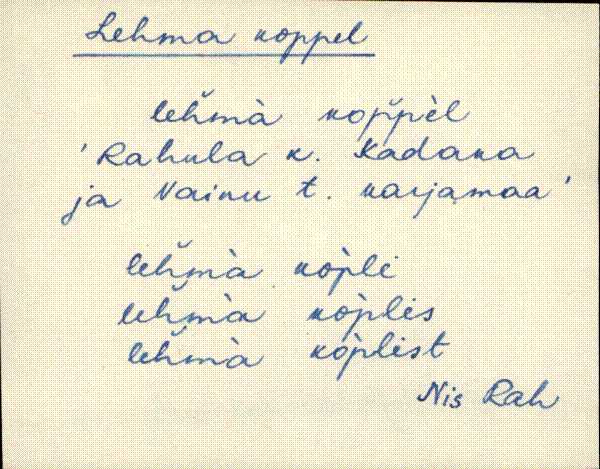 Lehma koppel
lȟmà kop̆pèl
'Rahula k. Kadaka
ja Nainu t. karjamaa'
lȟmà kòpli
lȟmà kòplis
lȟmà kòplist
Nis Rah